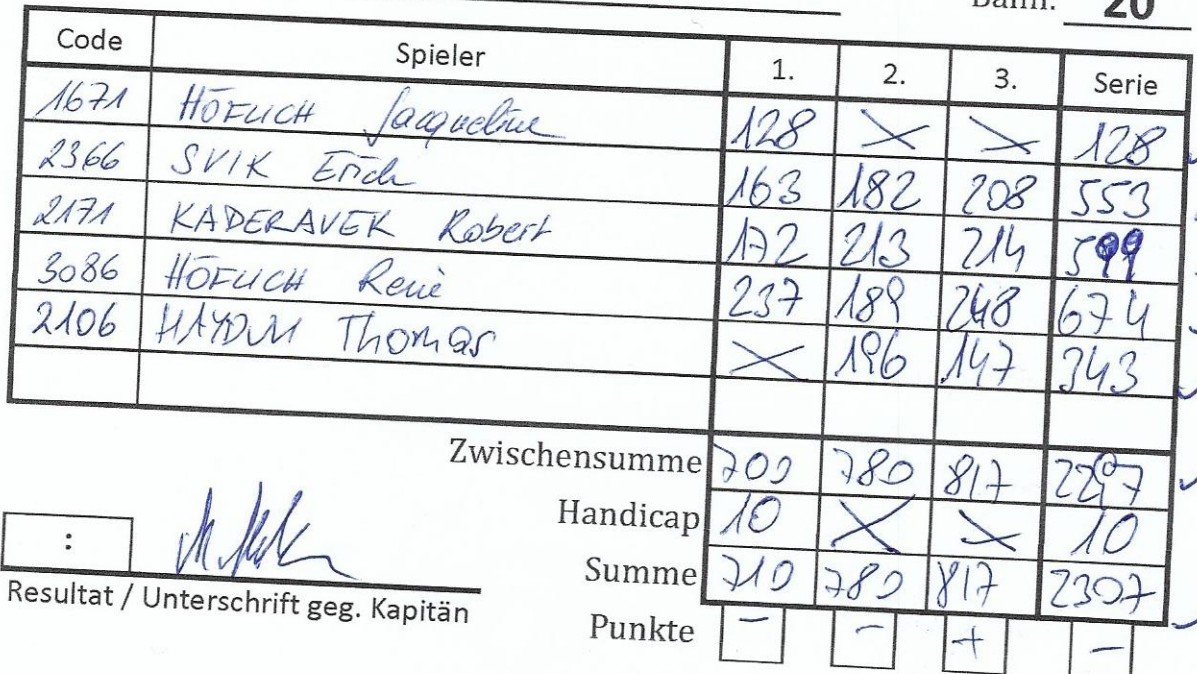 Bahn: 20
Code Spieler 1. 2. 3. Serie
1671 HÖFLICH Jacqueline 128 X X 128
2366 SVIK Erich 163 182 208 553
2171 KADERAVEK Robert 172 213 214 599
3086 HÖFLICH René 237 189 248 674
2106 Thomas X 196 147 343
Zwischensumme 700 780 817 2297
Handicap 10 X X 10
: Summe 710 780 817 2307
Resultat / Unterschrift geg. Kapitän
Punkte - - + -